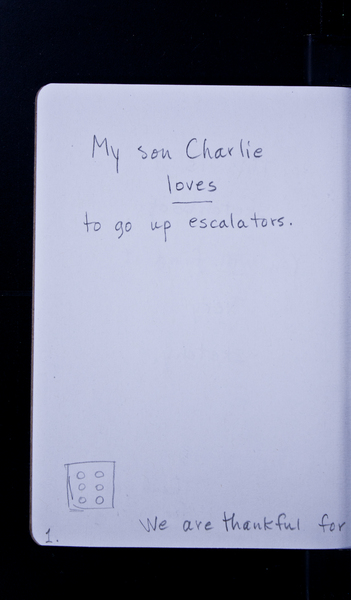 My son Charlie
loves
to go up escalators.
We are thankful for
1.